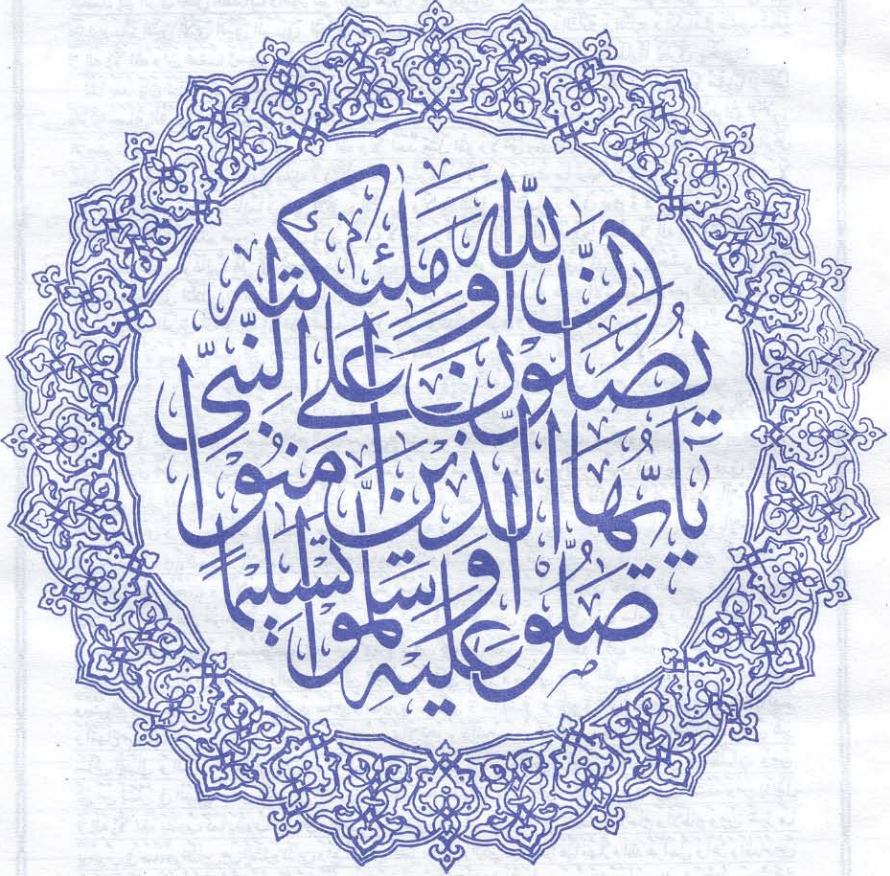 إِنَّ اللّٰهَ وَمَلٰئِكَتَهٗ
يُصَلُّوْنَ عَلَى النَّبِيِّ
يٰاَيُّهَا الَّذِيْنَ اٰمَنُوْا
صَلُّوْا عَلَيْهِ وَسَلِّمُوْا تَسْلِيْمًا